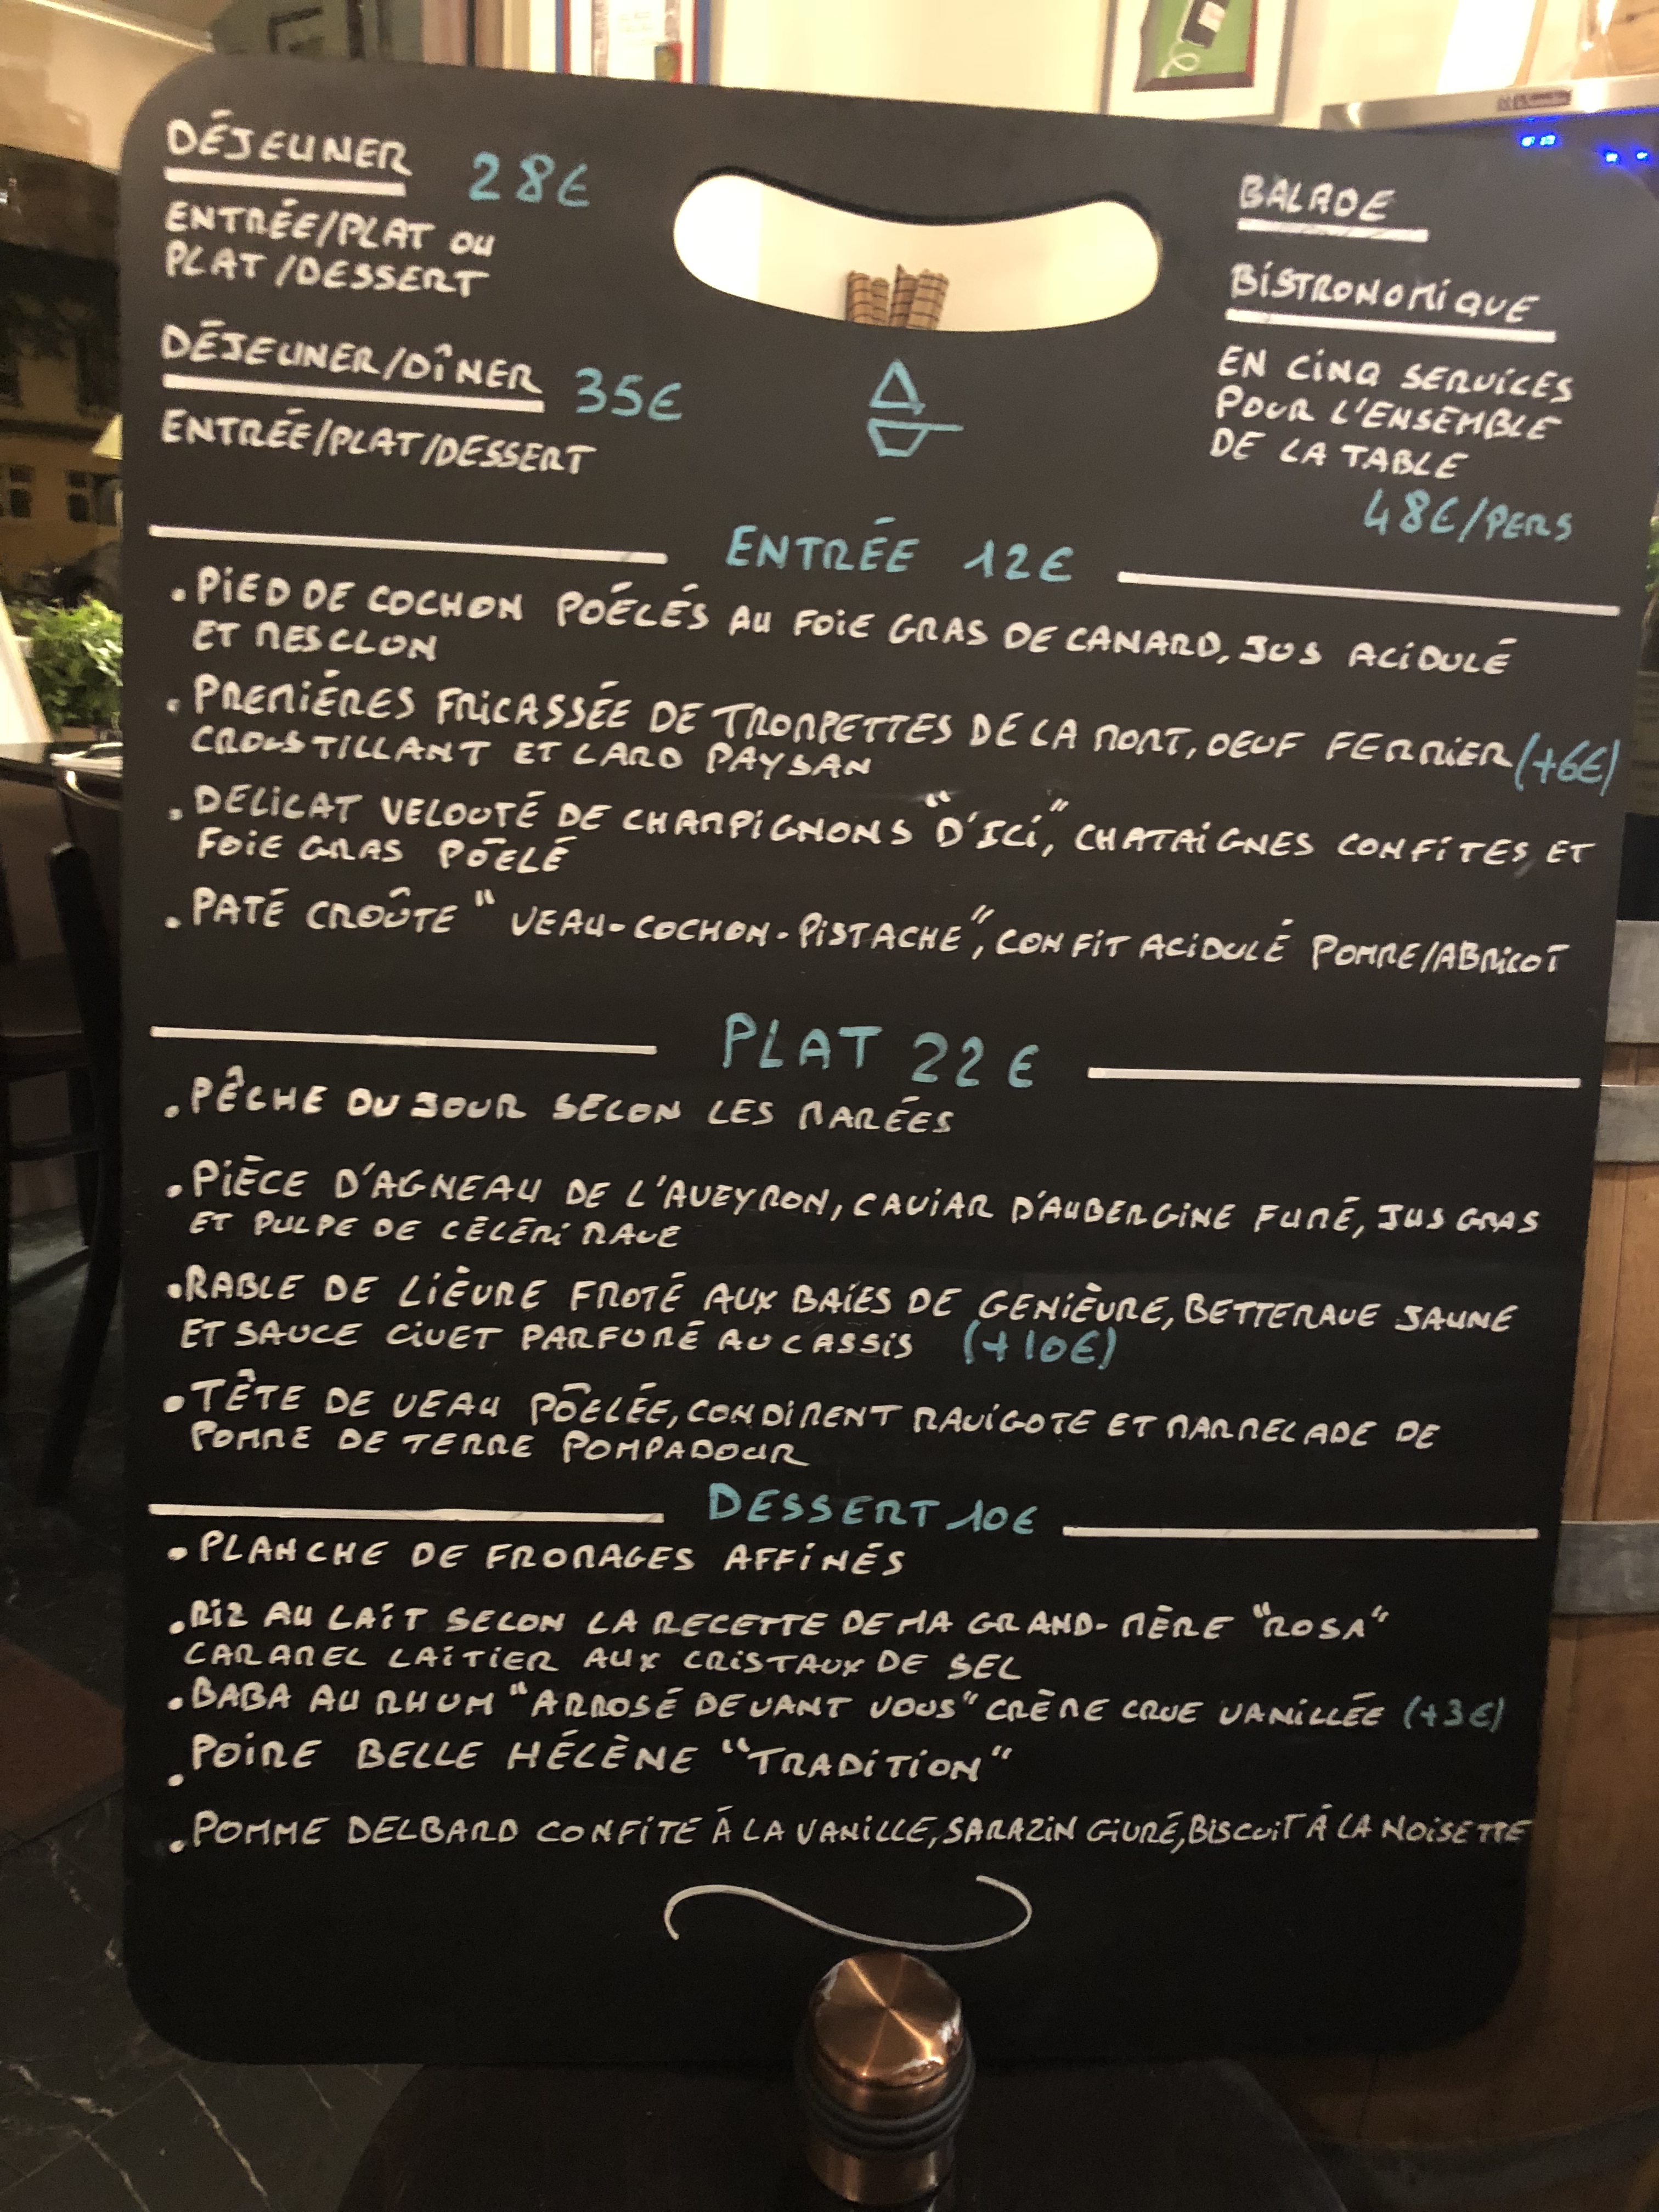 DÉJEUNER 28€
ENTRÉE/PLAT OU
PLAT/DESSERT
DÉJEUNER/DÎNER 35€
ENTRÉE/PLAT/DESSERT
BALADE
BISTRONOMIQUE
EN CINQ SERVICES
POUR L'ENSEMBLE
DE LA TABLE
48€/PERS
ENTRÉE 12€
. PIED DE COCHON POÉLÉS AU FOIE GRAS DE CANARD, JUS ACIDULÉ
ET MESCLON
. PREMIÉRES FRICASSÉE DE TROMPETTES DE LA MORT, OEUF FERMIER (+6€)
CROUSTILLANT ET LARD PAYSAN
. DELICAT VELOUTÉ DE CHAMPIGNONS "D'ICI", CHATAIGNES CONFITES, ET
FOIE GRAS PÔELÉ
. PATÉ CROÛTE "VEAU-COCHON-PISTACHE", CONFIT ACIDULÉ POMME/ABRICOT
PLAT 22€
. PÊCHE DU JOUR SELON LES MARÉES
. PIÈCE D'AGNEAU DE L'AVEYRON, CAVIAR D'AUBERGINE FUMÉ, JUS GRAS
ET PULPE DE CÉLÉRI RAVE
. RABLE DE LIÈVRE FROTÉ AUX BAIES DE GENIÈVRE, BETTERAVE JAUNE
ET SAUCE CIVET PARFUMÉ AU CASSIS (+10€)
. TÊTE DE VEAU PÔELÉE, CONDIMENT RAVIGOTE ET MARMELADE DE
POMME DE TERRE POMPADOUR
DESSERT 10€
. PLANCHE DE FROMAGES AFFINÉS
. RIZ AU LAIT SELON LA RECETTE DE MA GRAND-MÈRE "ROSA"
CARAMEL LAITIER AUX CRISTAUX DE SEL
. BABA AU RHUM "ARROSÉ DEVANT VOUS" CRÈME CRUE VANILLÉE (+3€)
. POIRE BELLE HÉLÈNE "TRADITION"
. POMME DELBARD CONFITE À LA VANILLE, SARAZIN GIVRÉ, BISCUIT À LA NOISETTE